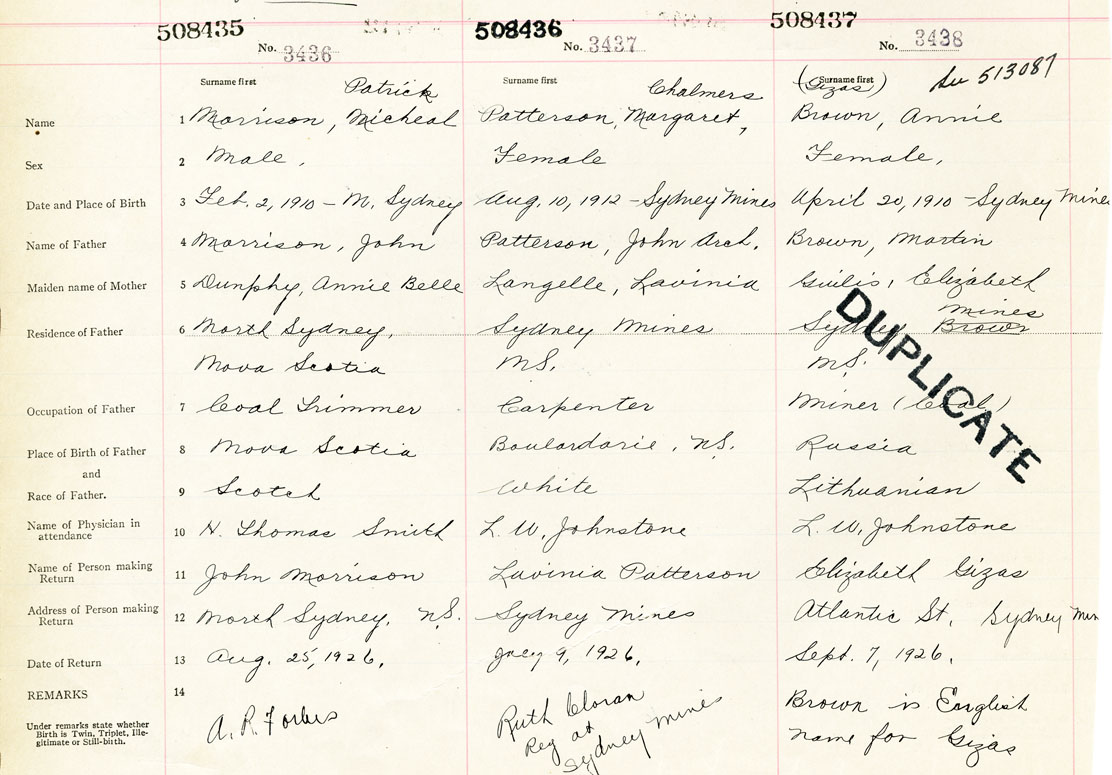 508435 508436 508437
No. 3436 No. 3437 No. 3438
Surname first Surname first Surname first
Patrick Chalmers (Gizas) Su 513087
Name 1 Morrison, Micheal Patterson, Margaret, Brown, Annie
Sex 2 Male, Female Female,
Date and Place of Birth 3 Feb. 2, 1910 - N. Sydney Aug. 10, 1912 - Sydney Mines April 20, 1910 - Sydney Mines
Name of Father 4 Morrison, John Patterson, John Arch. Brown, Martin
Maiden name of Mother 5 Dunphy, Annie Belle Langelle, Lavinia Guilis, Elizabeth
Mines
Residence of Father 6 North Sydney, Sydney Mines Sydney Brown
Nova Scotia NS. NS.
DUPLICATE
Occupation of Father 7 Coal Trimmer Carpenter Miner (Coal)
Place of Birth of Father 8 Nova Scotia Boulardarie, NS. Russia
and
Race of Father. 9 Scotch White Lithuanian
Name of Physician in
attendance 10 H. Thomas Smith L. W. Johnstone L. W. Johnstone
Name of Person making
Return 11 John Morrison Lavinia Patterson Elizabeth Gizas
Address of Person making
Return 12 North Sydney, NS. Sydney Mines Atlantic St. Sydney Min
Date of Return 13 Aug. 25, 1926, 9, 1926. Sept. 7, 1926.
REMARKS 14
Under remarks state whether
Birth is Twin, Triplet, Ille-
gitimate or Still-birth.
A. R. Forbes
Ruth Cloran
Reg at
Sydney Mines
Brown is English
name for Gizas